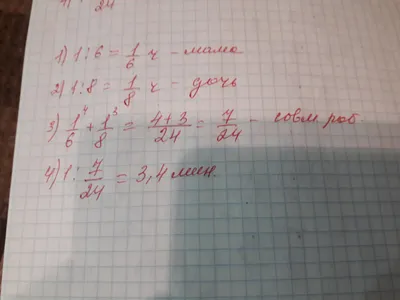 24
1) 1:6 = 1/6 ч - мама
2) 1:8 = 1/8 ч - дочь
3) 1/6 ⁴ + 1/8 ³ = 4+3/24 = 7/24 - совм. раб.
4) 1: 7/24 = 3,4 мин.